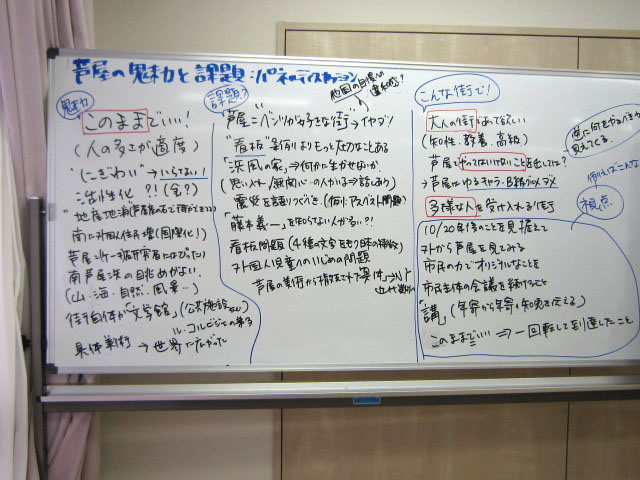 芦屋の魅力と課題:パネルディスカッション
魅力
このままでいい!
(人の多さが適度)
"にぎわい"→いらない
活性化?!(金?)
南に外国人住民増(国際化!)
南芦屋浜の眺めがいい
(山・海・自然・風景…)
街自体が「文学館」(公共施設など)
ル・コルビジェの弟子
具体美術→世界に広がった
課題?
"芦屋=ベンツが好きな街"→イヤダ!
他国の目線の違和感?
"看板"条例よりもっと大切なことある
"浜風の家"⇒何かに生かせないか
(思い入れ/無関心の人がいる⇒話しあう)
震災を語りつぐべき、(例:アスベスト問題)
"藤本義一"を知らない人が多い?!
看板問題(4種の文字をもつ日本の特徴)
外国人児童へのいじめの問題
こんな街で!
大人の街であって欲しい
(知性、教養、高級)
芦屋でやってはいけないことを出しては?
→芦屋にはゆるキャラ・B級グルメダメ
多様な人を受け入れる街
逆に何をやるべきか見えてくる。
例えばこんな視点
10/20年後のことを見据えて
外から芦屋を見てみる
市民の力でオリジナルなことを
市民主体の会議を続けること
「講」(年寄から年寄へ知恵を伝える)
このままでいい⇒一回転して到達したこと